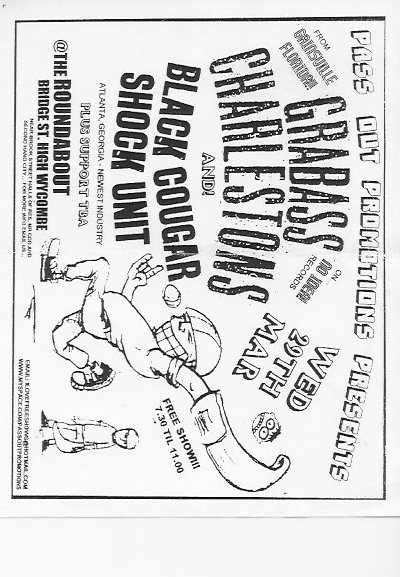 PASS OUT PROMOTIONS PRESENTS
FROM
GAINSVILLE
FLORIDA!!
GRABASS
CHARLESTONS
ON
NO IDEA!
RECORDS
AND!
WED
29TH
MAR
BLACK COUGAR
SHOCK UNIT
ATLANTA, GEORGIA - NEWEST INDUSTRY
PLUS SUPPORT TBA
FREE SHOW!!!
7.30 TIL 11.00
@THE ROUNDABOUT
BRIDGE ST. HIGH WYCOMBE
NEAR BROOK STREET HALLS OF RES, MR COD AND
SECOND HAND CITY.... FOR MORE INFO EMAIL US...
EMAIL: ILOVEFREESHOWS@HOTMAIL.COM
WWW.MYSPACE.COM/PASSOUTPROMOTIONS